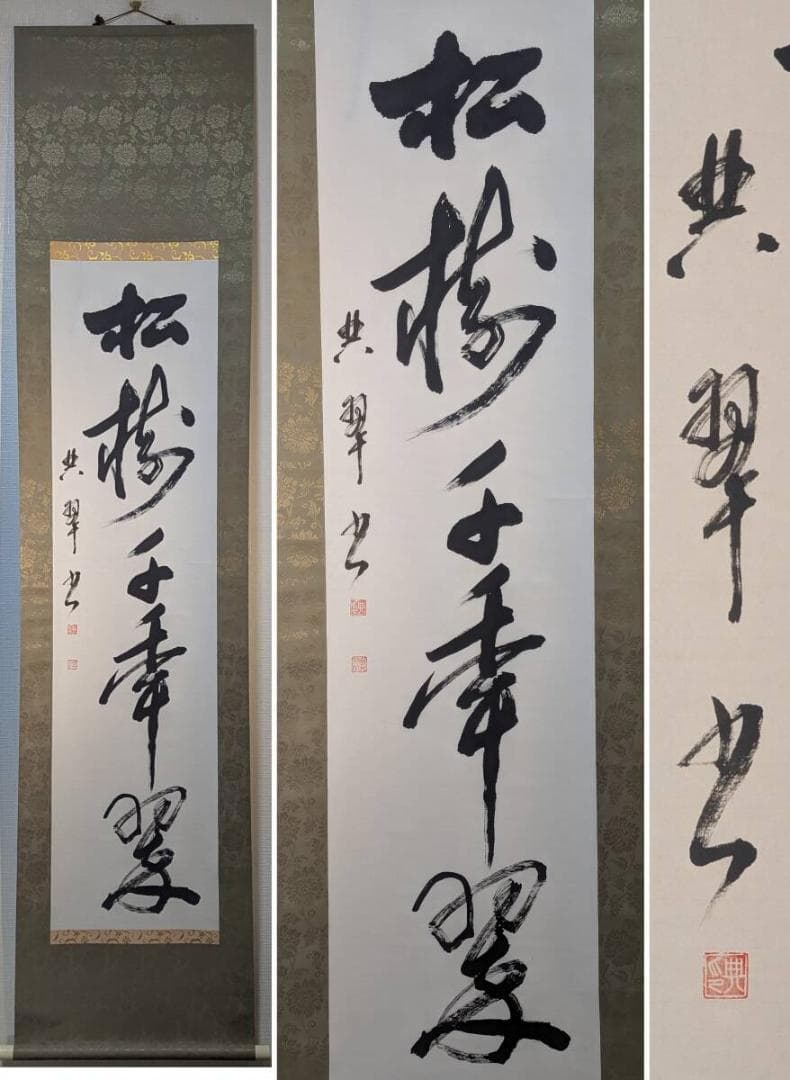 松樹千年翠
典翠書
松樹千年翠
典翠書
典翠書